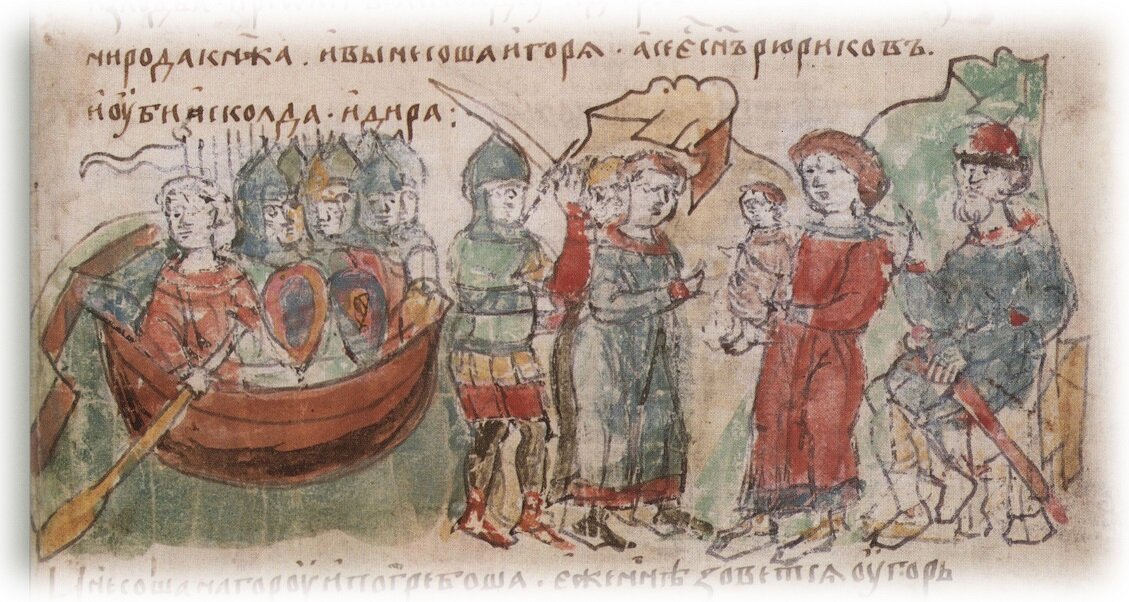 нирода кнѧжа . и вынесоша игорѧ . а се є сн҃ъ рюриковъ .
и ѹби исколда . и дира :
несоша на гороу и погребоша . єже нн҃ѣ зоветсѧ оугорь